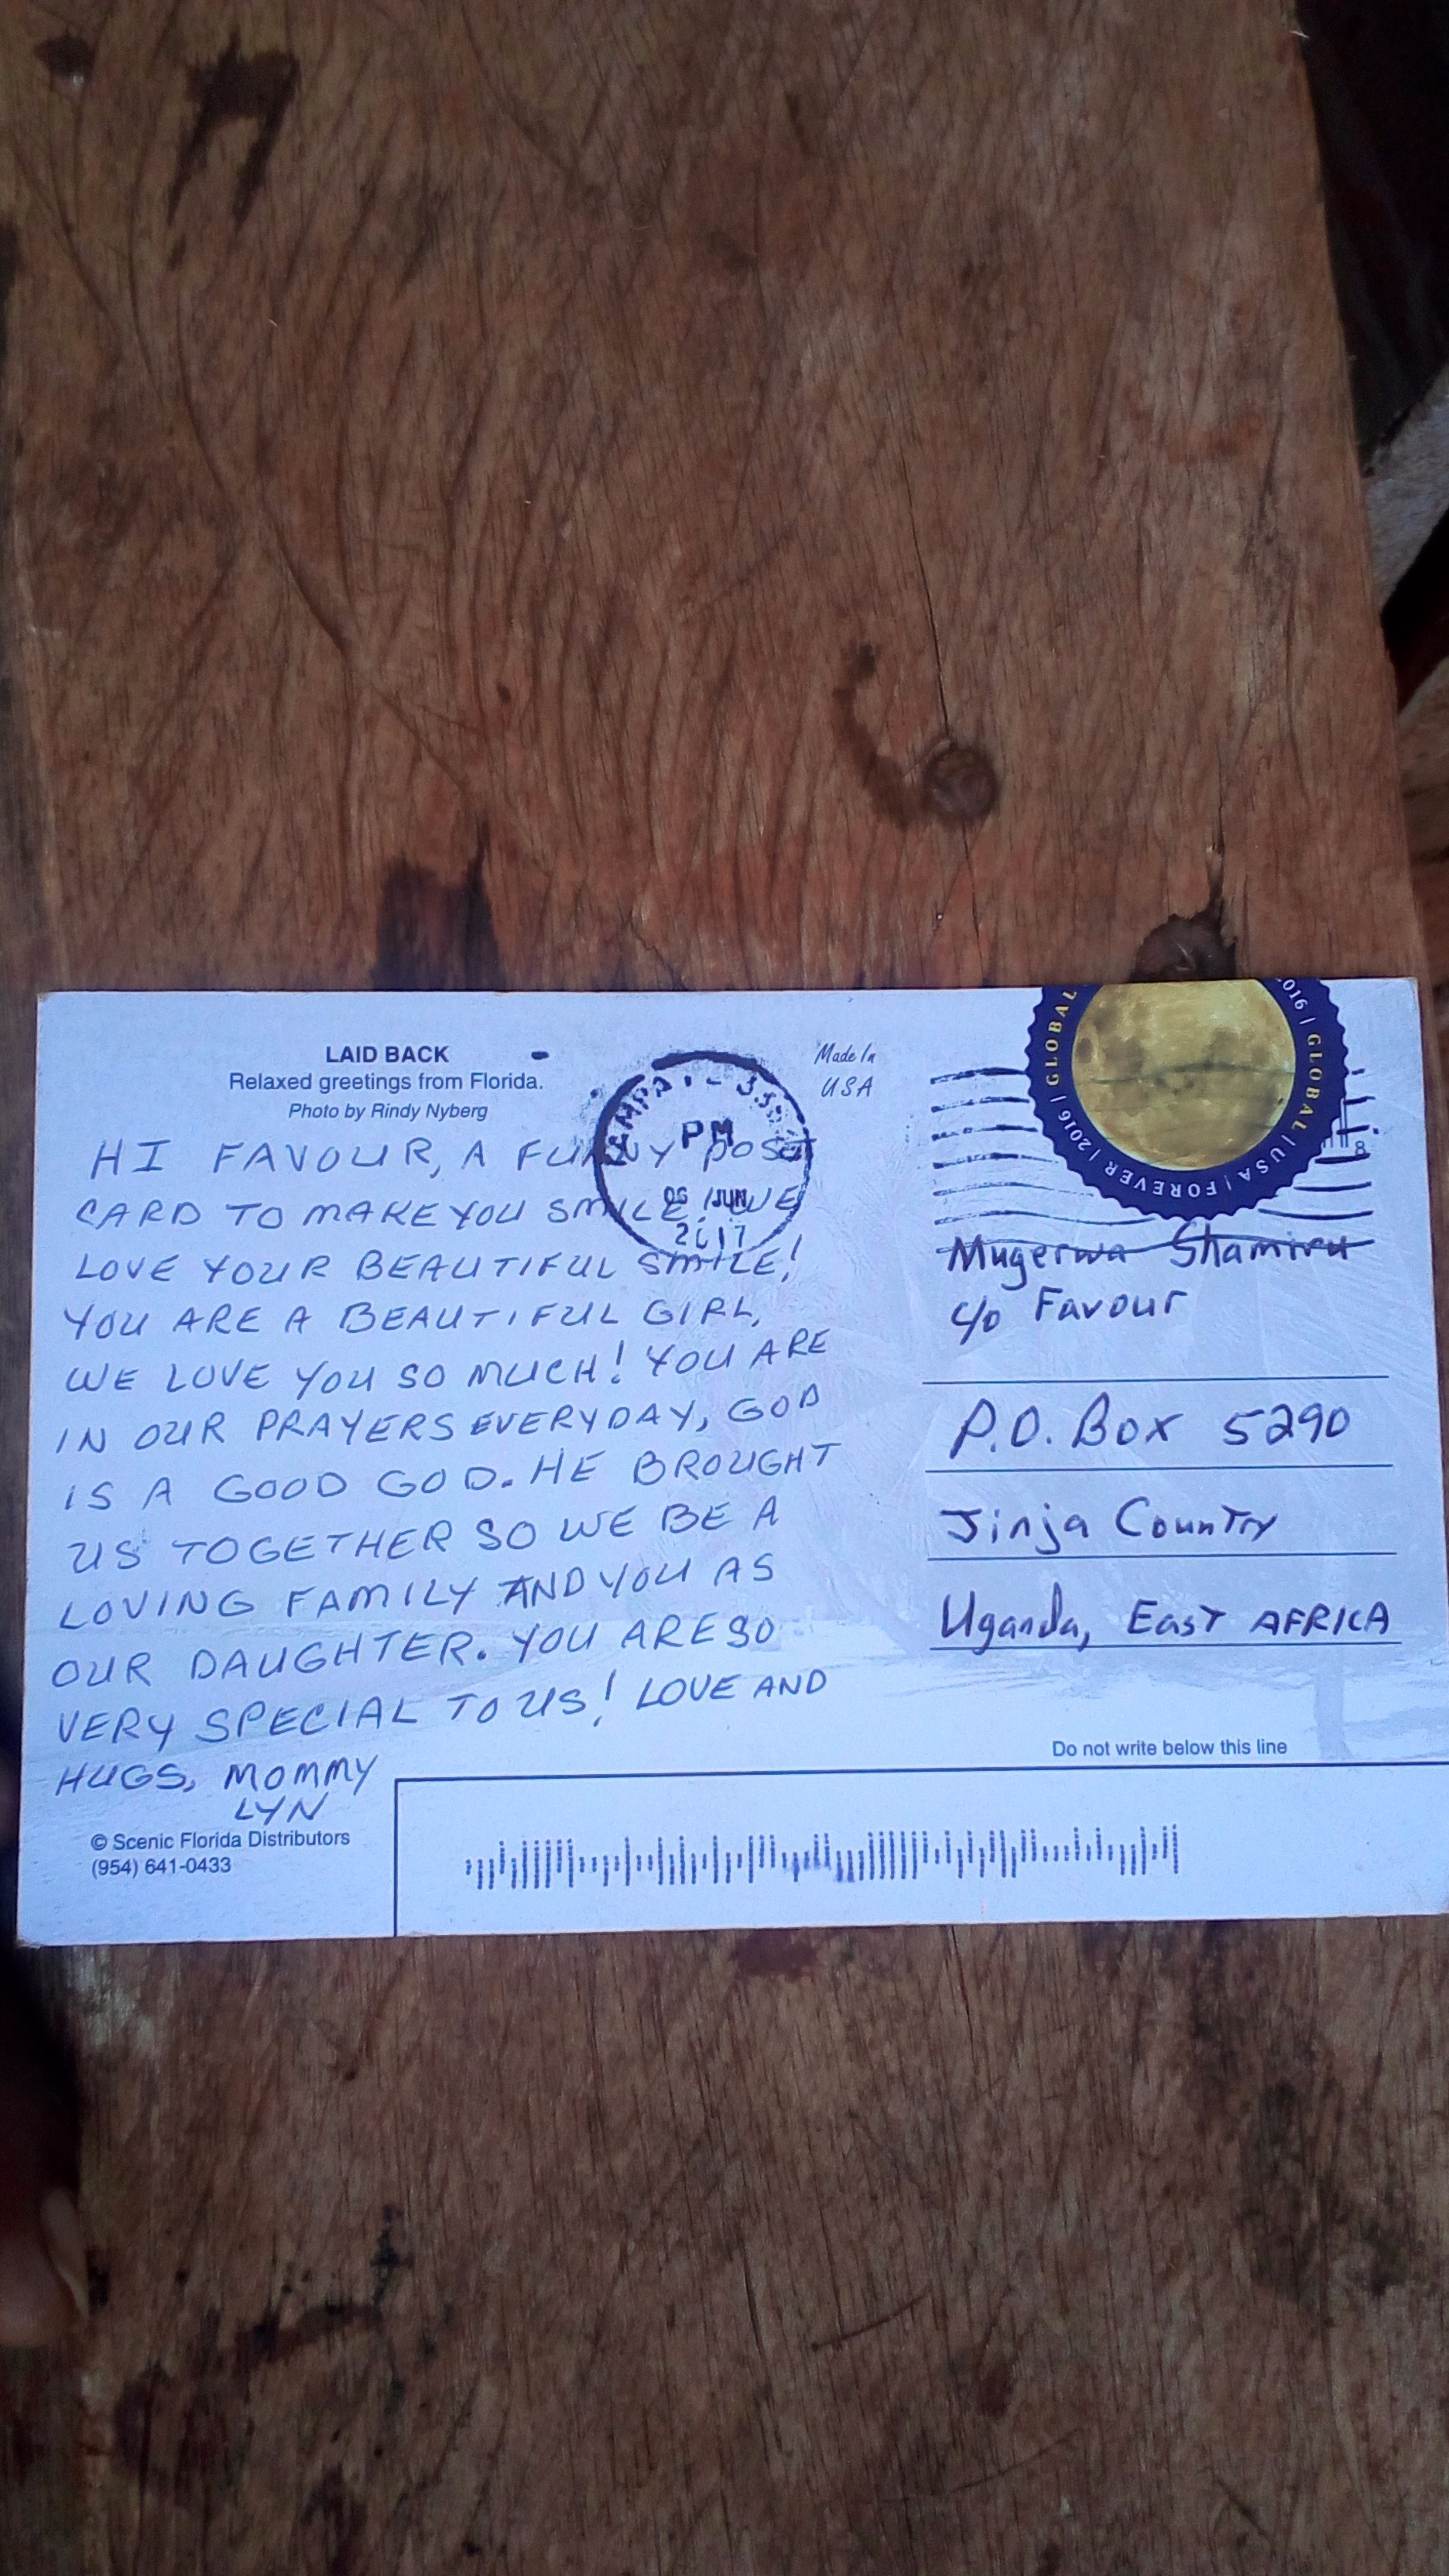 LAID BACK
Relaxed greetings from Florida.
Photo by Rindy Nyberg
HI FAVOUR, A FUNNY POST
CARD TO MAKE YOU SMILE! WE
LOVE YOUR BEAUTIFUL SMILE!
YOU ARE A BEAUTIFUL GIRL,
WE LOVE YOU SO MUCH! YOU ARE
IN OUR PRAYERS EVERYDAY, GOD
IS A GOOD GOD. HE BROUGHT
US TOGETHER SO WE BE A
LOVING FAMILY AND YOU AS
OUR DAUGHTER. YOU ARE SO
VERY SPECIAL TO US! LOVE AND
HUGS, MOMMY
LYN
© Scenic Florida Distributors
(954) 641-0433
PM
06 JUN
2017
Made In
USA
2016 | GLOBAL | USA | FOREVER | 2016 | GLOBAL
Mugerwa Shamiru
c/o Favour
P.O. Box 5290
Jinja Country
Uganda, East AFRICA
Do not write below this line